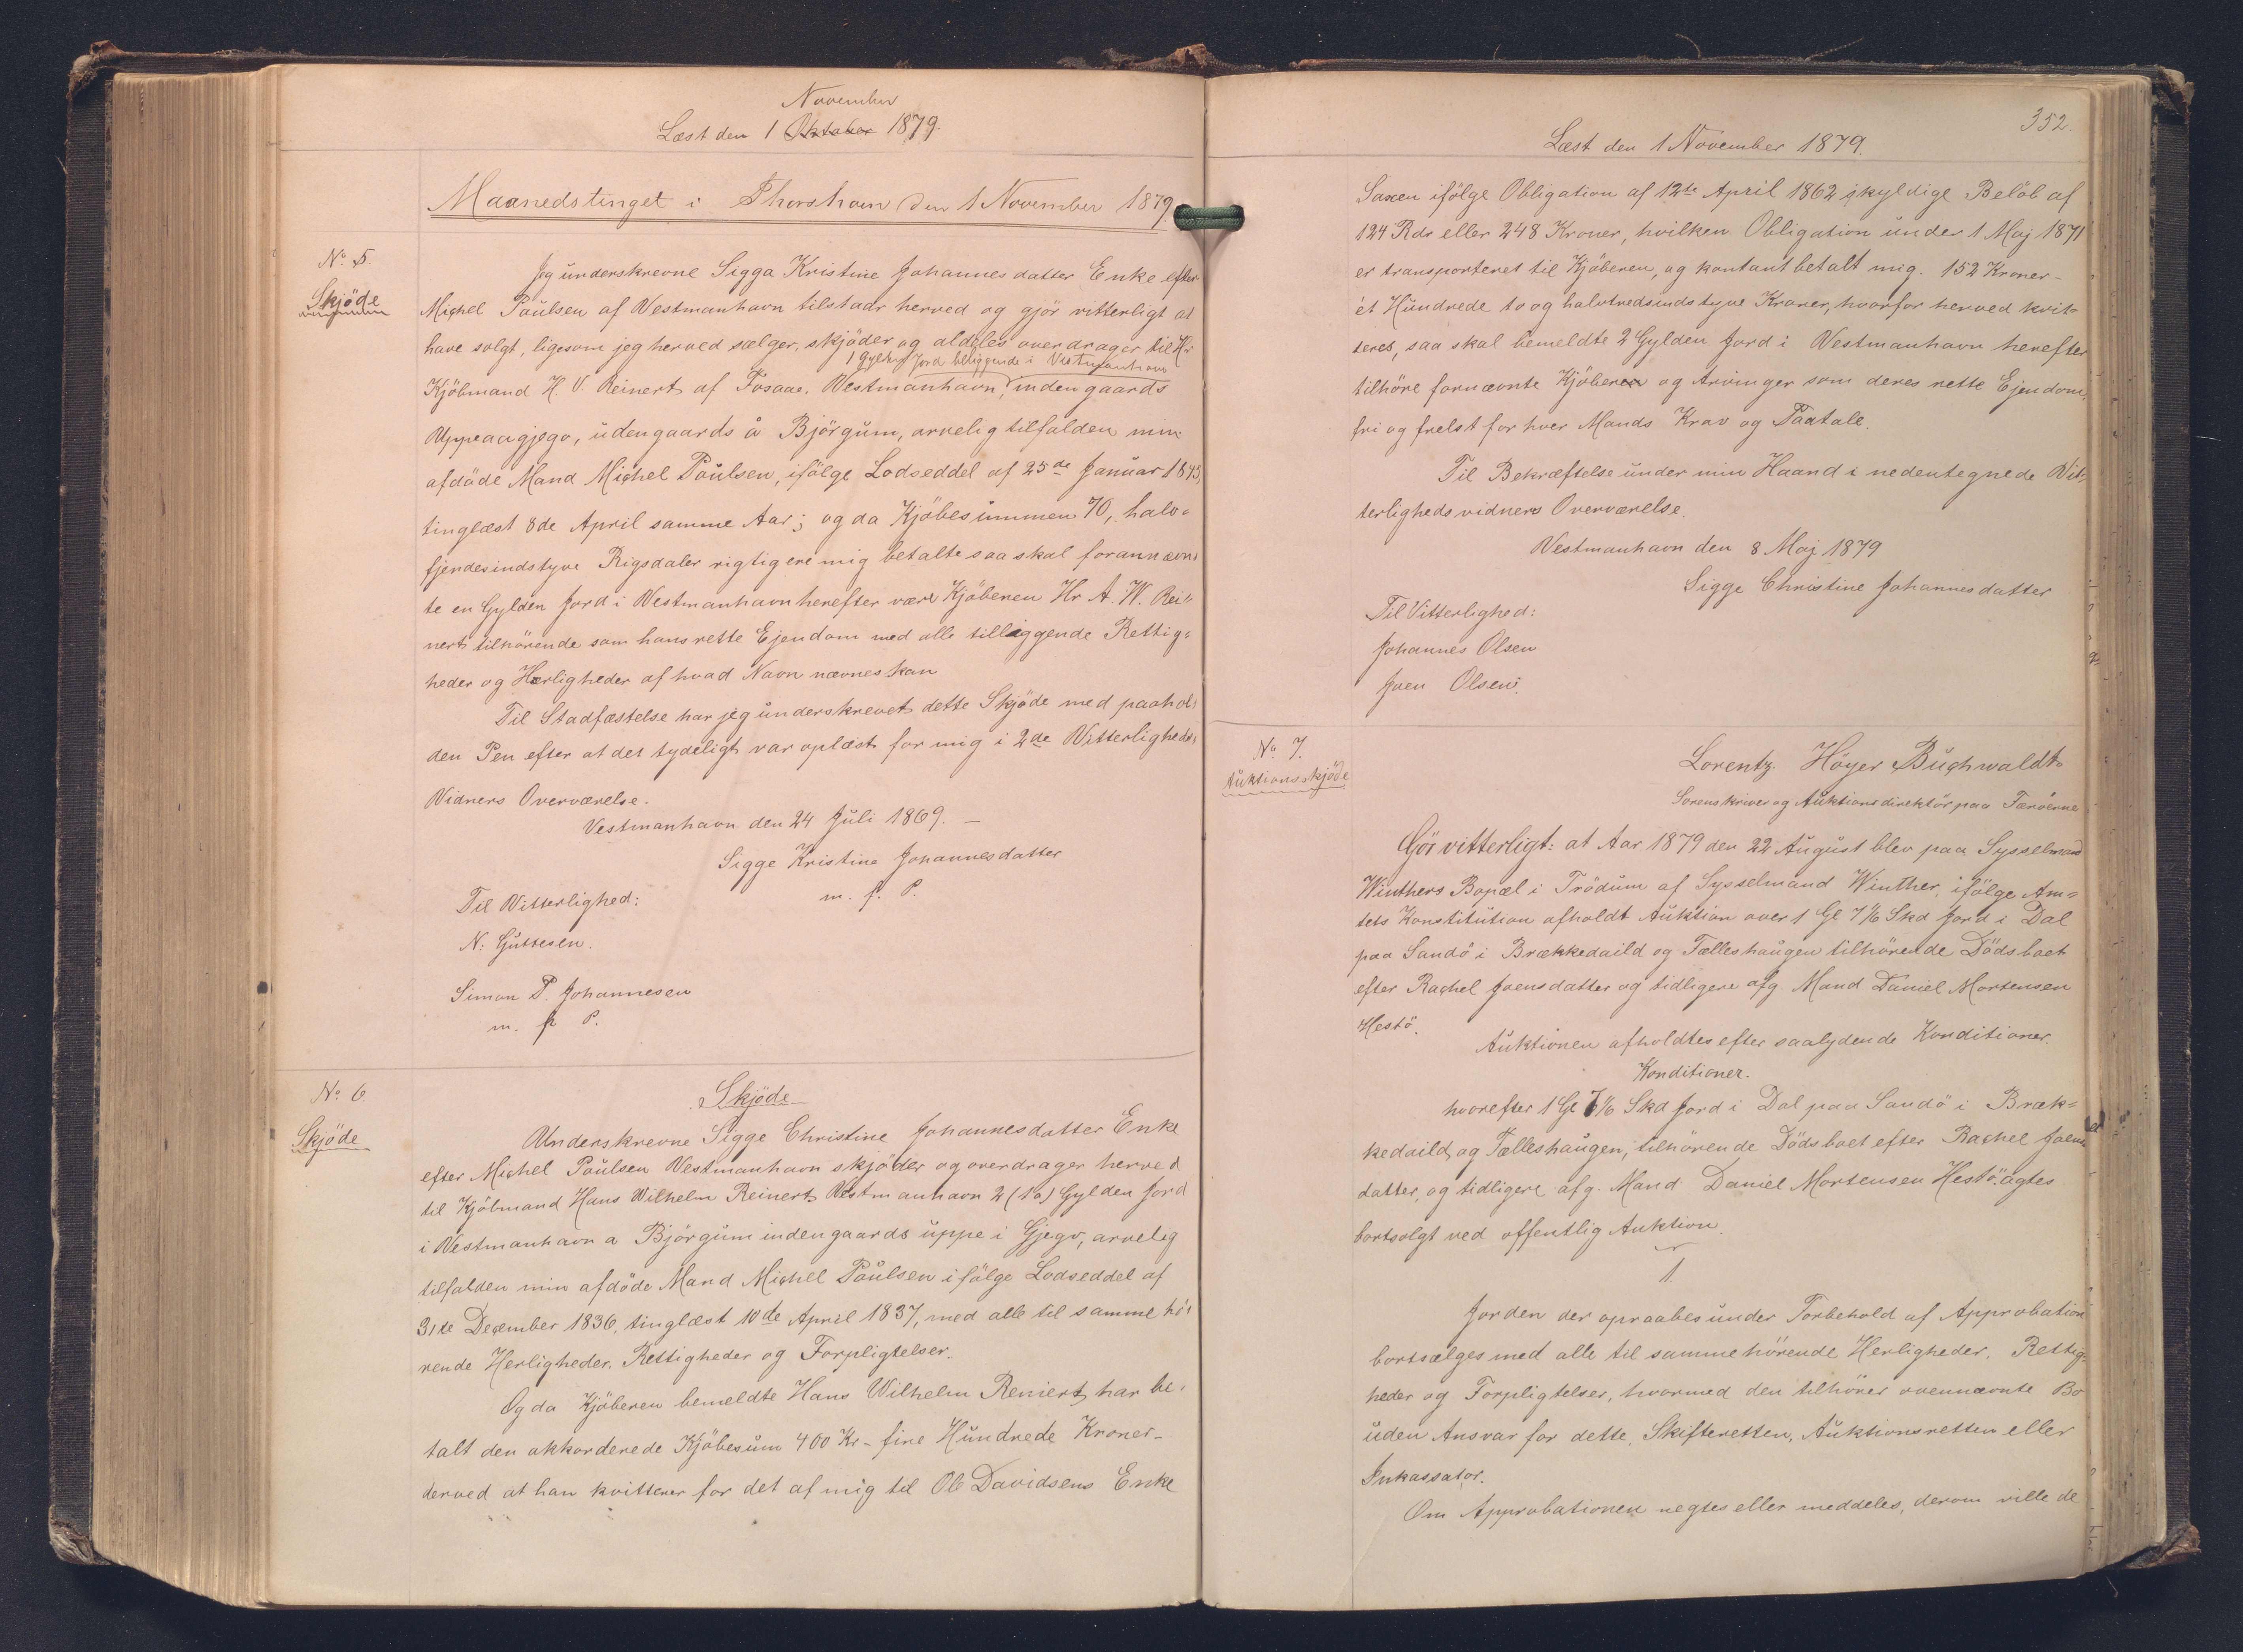 November
Læst den 1 Oktober 1879.
Maanedstinget i Thorshavn den 1 November 1879.
No. 5.
Skjöde
Jeg underskrevne Sigga Kristine Johannesdatter Enke efter
Michel Poulsen af Westmanhavn tilstaar herved og gjör vitterligt at
have solgt, ligesom jeg herved sælger, skjöder og aldeles overdrager til Hr
1 Gylden Jord beliggende i Vestmanhavn
Kjöbmand H. V. Reinert af Fosaae, Westmanhavn, indengaards
Uppeaagjegv, udengaards á Björgum, arvelig tilfalden min
afdöde Mand Michel Poulsen, ifölge Lodseddel af 25de Januar 1843,
tinglæst 8de April samme Aar; og da Kjöbesummen 70, halv-
fjerdesindstyve Rigsdaler rigtig ere mig betalte saa skal forannævn-
te en Gylden Jord i Westmanhavn herefter være Kjöberen Hr A. W. Rei-
nert tilhörende som hans rette Ejendom med alle tilliggende Rettig-
heder og Herligheder af hvad Navn nævnes kan
Til Stadfæstelse har jeg underskrevet dette Skjöde med paahol-
den Pen efter at det tydeligt var oplæst for mig i 2de Vitterligheds
Vidners Overværelse.
Vestmanhavn den 24 Juli 1869. —
Sigge Kristine Johannesdatter
m. f. P.
Til Vitterlighed:
N. Guttesen.
Simon P. Johannesen
m. f P.
No. 6
Skjöde
Skjöde
Underskrevne Sigge Christine Johannesdatter Enke
efter Michel Poulsen Westmanhavn skjöder og overdrager herved
til Kjöbmand Hans Wilhelm Reinert Vestmanhavn 2 (to) Gylden Jord
i Vestmanhavn a Björgum indengaards uppe i Gjegv, arvelig
tilfalden min afdöde Mand Michel Poulsen ifölge Lodseddel af
31te December 1836, tinglæst 10de April 1837, med alle til samme hö-
rende Herligheder, Rettigheder og Forpligtelser.
Og da Kjöberen bemeldte Hans Wilhelm Reniert har be-
talt den akkorderede Kjöbesum 400 Kr - fire Hundrede Kroner -
derved at han kvitterer for det af mig til Ole Davidsens Enke
352.
Læst den 1 November 1879.
Saxen ifölge Obligation af 12te April 1862 skyldige Belöb af
124 Rdr eller 248 Kroner, hvilken Obligation under 1 Maj 1871
er transporteret til Kjöberen, og kontant betalt mig. 152 Kroner -
ét Hundrede to og halvtredsindstyve Kroner, hvorfor herved kvit-
teres, saa skal bemeldte 2 Gylden Jord i Westmanhavn herefter
tilhöre fornævnte Kjöberen og Arvinger som deres rette Ejendom,
fri og frelst for hver Mands Krav og Paatale.
Til Bekræftelse under min Haand i nedentegnede Vit-
terligheds vidners Overværelse.
Vestmanhavn den 8 Maj 1879
Sigge Christine Johannesdatter
Til Vitterlighed:
Johannes Olsen
Joen Olsen.
No. 7.
Auktionsskjöde
Lorentz Höyer Buchwaldt
Sorenskriver og Auktionsdirektör paa Færöerne
Gör vitterligt: at Aar 1879 den 22 August blev paa Sysselmand
Winthers Bopæl i Trödum af Sysselmand Winther, ifölge Am-
tets Konstitution afholdt Auktion over 1 Gl 7 1/6 Skd Jord i Dal
paa Sandö i Brækkedaild og Fælleshaugen tilhörende Dödsboet
efter Rachel Joensdatter og tidligere afg. Mand Daniel Mortensen
Hestö.
Auktionen afholdtes efter saalydende Konditioner.
Konditioner.
hvorefter 1 Gl 7 1/6 Skd Jord i Dal paa Sandö i Bræk-
kedaild og Fælleshaugen, tilhörende Dödsboet efter Rachel Joens
datter, og tidligere afg. Mand Daniel Mortensen Hestö agtes
bortsolgt ved offentlig Auktion.
1.
Jorden der opraabes under Forbehold af Approbation
bortsælges med alle til samme hörende Herligheder, Rettig-
heder og Forpligtelser, hvormed den tilhörer ovennævnte Bo
uden Ansvar for dette, Skifteretten, Auktionsretten eller
Inkassator.
Om Approbationen negtes eller meddeles, derom ville de